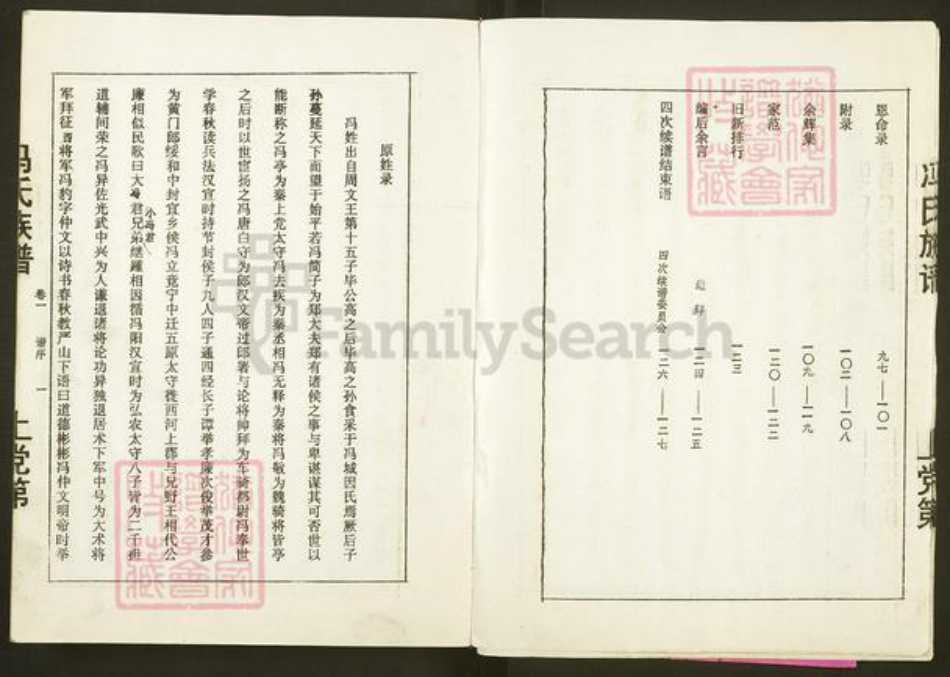 冯氏族谱
上党第
恩命录 九七——一〇一
附录 一〇二——一〇八
余辉集 一〇九——一一九
家范 一二〇——一二二
旧新排行 一二三
编后余言 一二四——一二五
四次续谱结束语 四次续谱委员会 一二六——一二七
原姓录
冯姓出自周文王第十五子毕公高之后毕高之孙食采于冯城因氏焉厥后子
孙蔓延天下而望于始平若冯简子为郑大夫郑有诸侯之事与卑谌谋其可否世以
能断称之冯亭为秦上党太守冯去疾为秦丞相冯无释为秦将冯敬为魏骑将皆亭
之后时以世宦扬之冯唐白守为郎汉文帝过郎署与论将帅拜为车骑都尉冯奉世
学春秋读兵法汉宣时持节封侯子九人四子通四经长子谭举孝廉次俊举茂才参
为黄门郎绥和中封宜乡侯冯立竟宁中迁五原太守徙西河上郡与兄野王相代公
廉相似民歌曰大冯君小冯君兄弟继踵相因循冯阳汉宣时为弘农太守八子皆为二千担
道辅间荣之冯异佐光武中兴为人谦退诸将论功异独退居术下军中号为大术将
军拜征西将军冯豹字仲文以诗书春秋教严山下语曰道德彬彬冯仲文明帝时举
冯氏族谱
卷一
谱序
一
上党第
FamilySearch